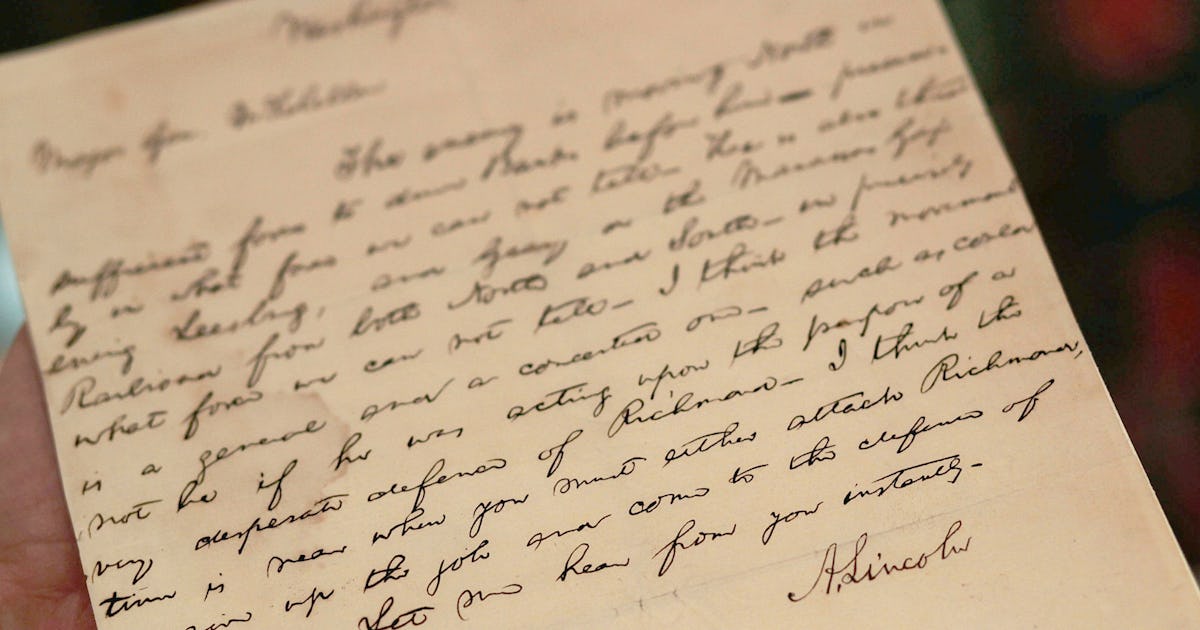 Washington
Major Gen. McClellan
The enemy is moving North in
sufficient force to drive Banks before him— precise-
ly in what force we can not tell— He is also threat
ening Leesburg, and Geary on the Manassas Gap
Railroad from both North and South— in precisely
what force we can not tell— I think the movement
is a general and a concerted one— such as could
not be if he was acting upon the purpose of a
very desperate defence of Richmond— I think the
time is near when you must either attack Richmond,
up the job and come to the defence of
Let me hear from you instantly—
A. Lincoln